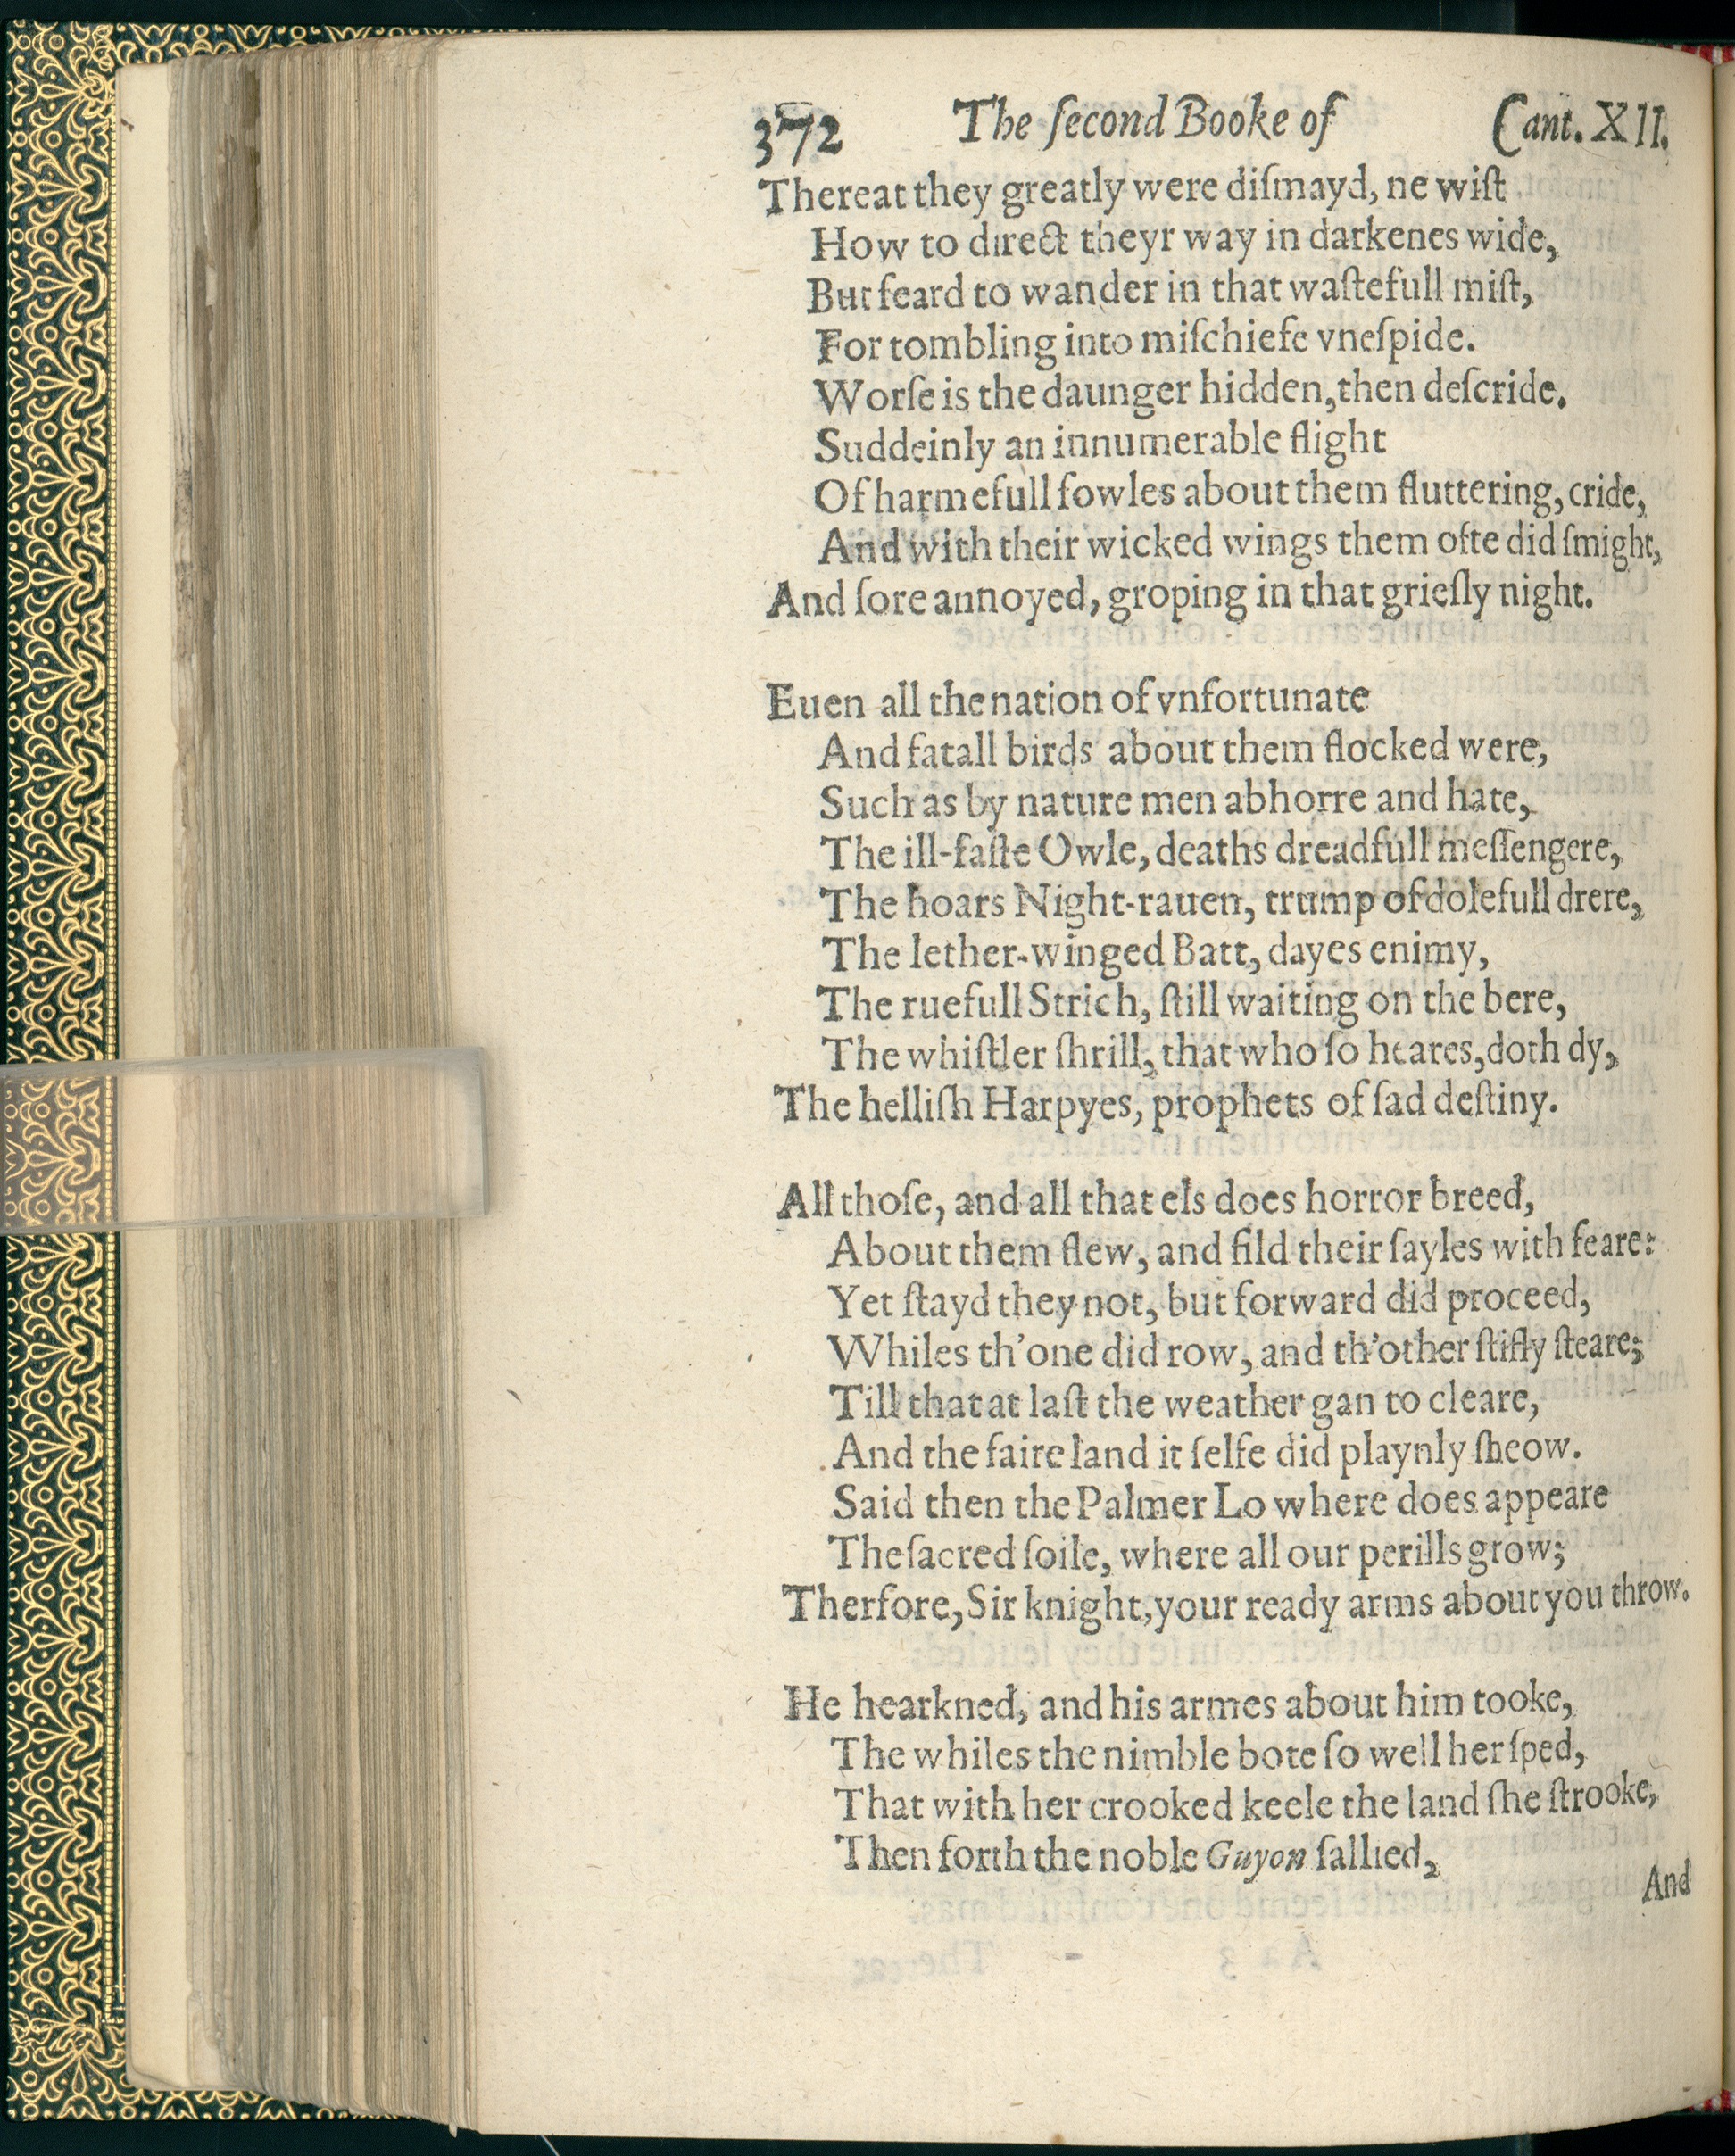 372 The ſecond Booke of Cant. XII.
Thereat they greatly were diſmayd, ne wiſt
How to direct theyr way in darkenes wide,
But feard to wander in that waſtefull miſt,
For tombling into miſchiefe vneſpide.
Worſe is the daunger hidden, then deſcride.
Suddeinly an innumerable flight
Of harmefull fowles about them fluttering, cride,
And with their wicked wings them ofte did ſmight,
And ſore annoyed, groping in that grieſly night.
Euen all the nation of vnfortunate
And fatall birds about them flocked were,
Such as by nature men abhorre and hate,
The ill-faſte Owle, deaths dreadfull meſſengere,
The hoars Night-rauen, trump of dolefull drere,
The lether-winged Batt, dayes enimy,
The ruefull Strich, ſtill waiting on the bere,
The whiſtler ſhrill, that who ſo heares, doth dy,
The helliſh Harpyes, prophets of ſad deſtiny.
All thoſe, and all that els does horror breed,
About them flew, and fild their ſayles with feare:
Yet ſtayd they not, but forward did proceed,
Whiles th'one did row, and th'other ſtifly ſteare;
Till that at laſt the weather gan to cleare,
And the faire land it ſelfe did playnly ſheow.
Said then the Palmer Lo where does appeare
The ſacred ſoile, where all our perills grow;
Therfore, Sir knight, your ready arms about you throw.
He hearkned, and his armes about him tooke,
The whiles the nimble bote ſo well her ſped,
That with her crooked keele the land ſhe ſtrooke,
Then forth the noble Guyon ſallied,
And